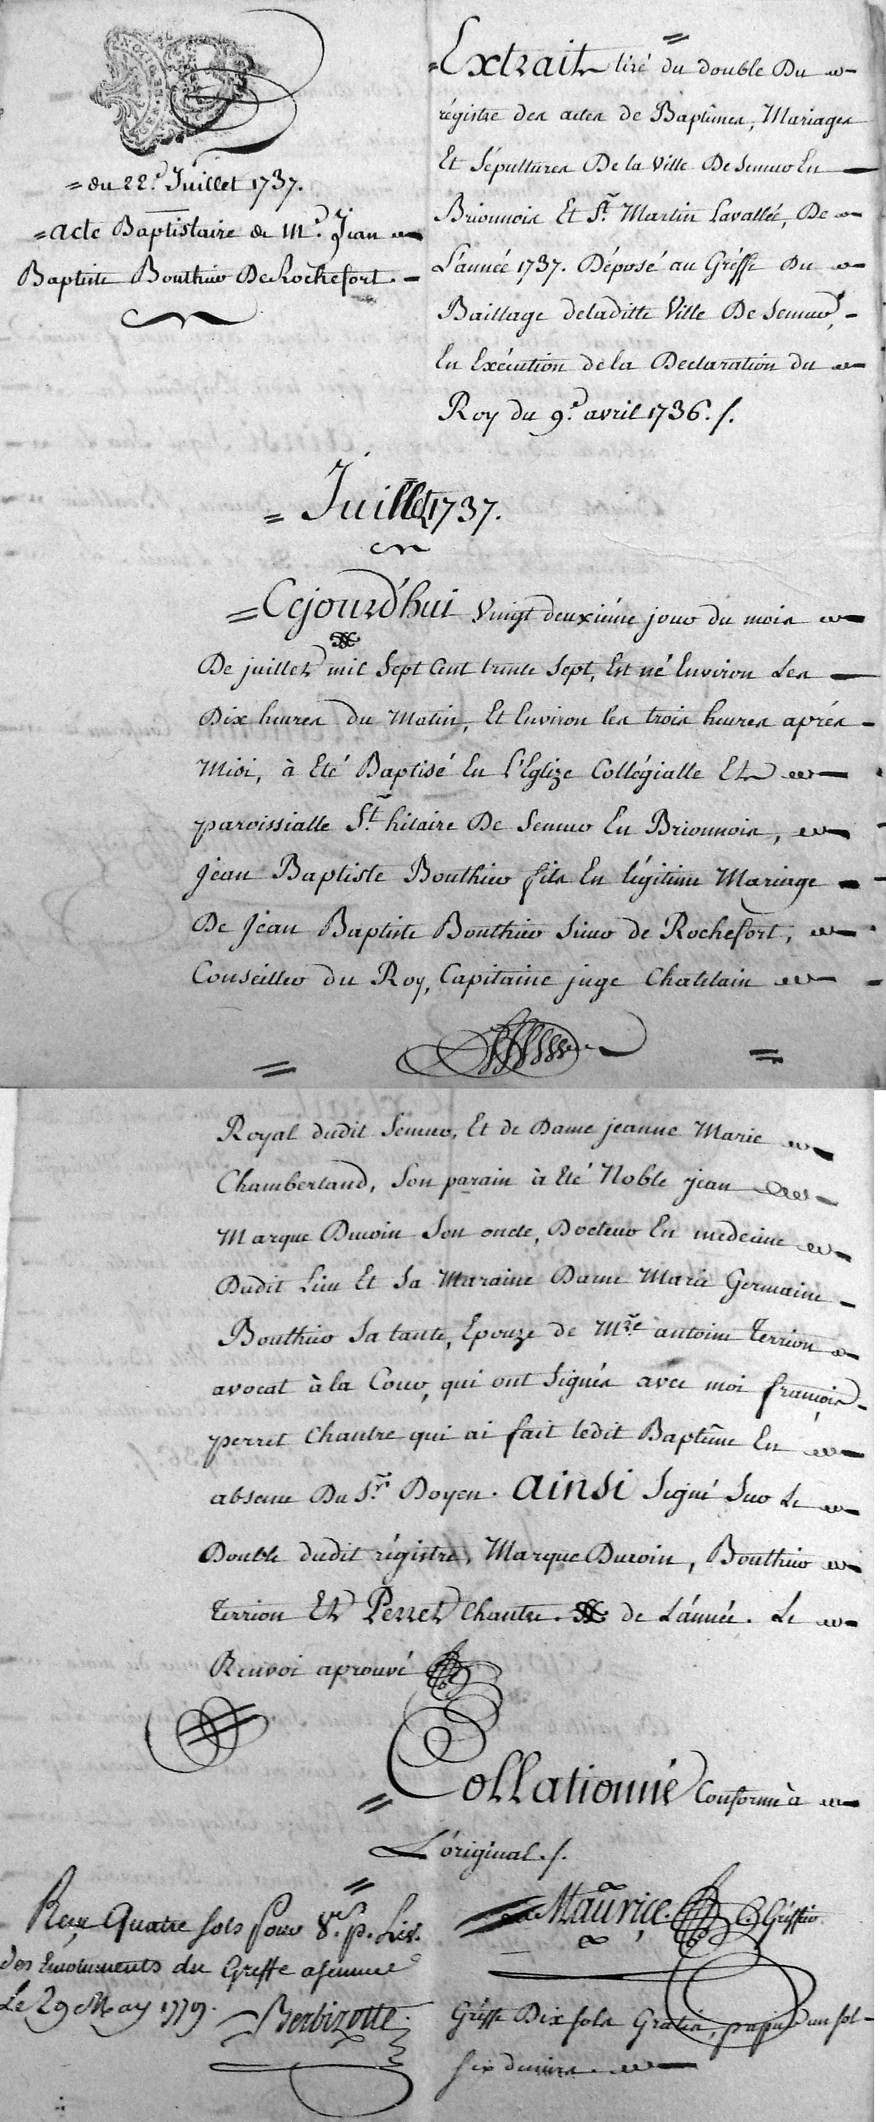 = du 22.e Juillet 1737.
= acte Baptistaire de M.r Jean
Baptiste Bouthier De Rochefort.
= Extrait tiré du double Du
régistre des actes de Baptêmes, Mariages
Et Sépultures De la Ville De Semur En
Brionnois Et St. Martin Lavallée, De
L'année 1737. Déposé au Gréffe Du
Bailliage deladitte Ville De Semur,
En Exécution de la Declaration du
Roy du 9.e avril 1736. /.
= Juillet 1737.
= Cejourd'hui Vingt deuxiéme jour du mois
De juillet mil Sept Cent trente Sept, Est né Environ Les
Dix heures du Matin, Et Environ les trois heures aprés
Midi, à Eté Baptisé En L'Eglize Collégialle Et
paroissialle St. hilaire De Semur En Brionnois,
Jean Baptiste Bouthier fils En légitime Mariage
De Jean Baptiste Bouthier Sieur de Rochefort,
Conseiller du Roy, Capitaine juge Chatelain
Royal dudit Semur, Et de Dame jeanne Marie
Chamberland, Son parain à Eté Noble jean
Marque Ducoin Son oncle, Docteur En medecine
Dudit Lieu Et Sa Maraine Dame Marie Germaine
Bouthier Sa tante, Epouze de M.re antoine Terrion
avocat à la Cour, qui ont Signés avec moi françois
perret Chantre qui ai fait ledit Baptême En
absence Du S.r Doyen. ainsi Signé Sur Le
Double dudit régistre, Marque Ducoin, Bouthier
Terrion Et Perret Chantre. de L'année. Le
Renvoi aprouvé
= Collationné Conforme à
L'original. /.
Maurice. C. Gréffier
Reçu Quatre sols pour 8.e p. Liv.
des Emoluments du Greffe a semur
Le 29 May 1779. Berbizotte
Gréffe Dix sols Gratis, papier un sol
six deniers